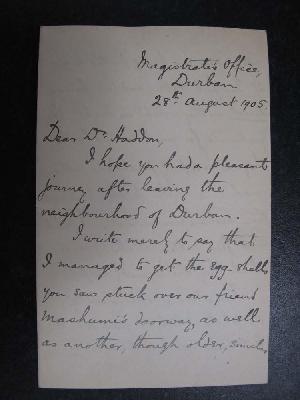 Magistrate's Office,
Durban
28th August 1905.
Dear Dr Haddon,
I hope you had a pleasant
journey after leaving the
neighbourhood of Durban.
I write merely to say that
I managed to get the egg-shells
you saw stuck over our friend
Mashumi's doorway, as well
as another, though older, similar